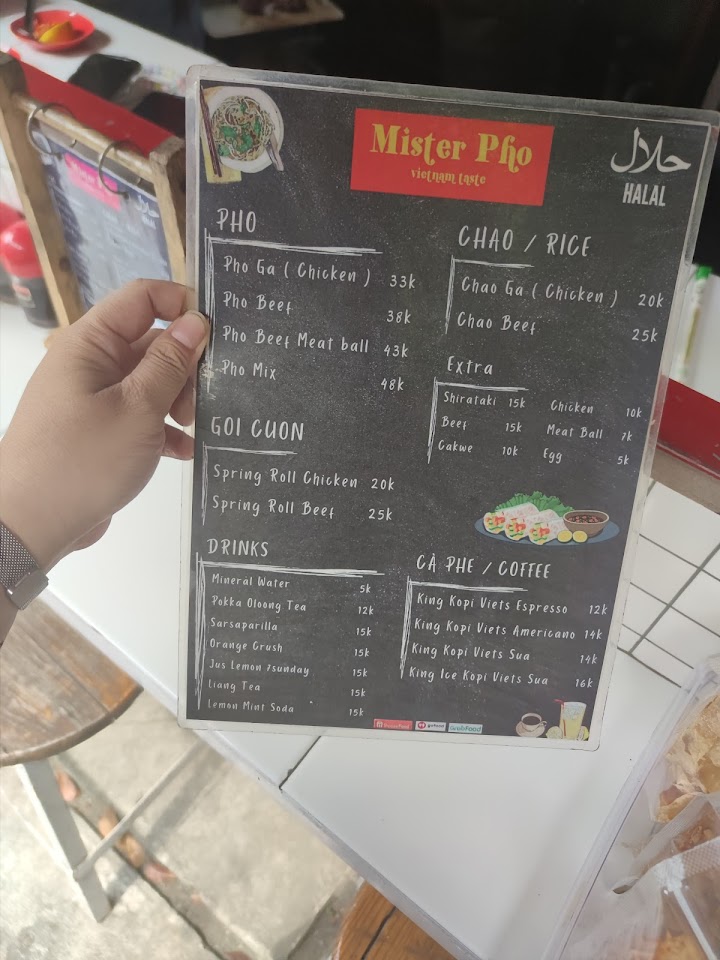 Mister Pho
vietnam taste
حلال
HALAL
PHO
Pho Ga ( Chicken ) 33k
Pho Beef 38k
Pho Beef Meat ball 43k
Pho Mix 48k
GOI CUON
Spring Roll Chicken 20k
Spring Roll Beef 25k
DRINKS
Mineral Water 5k
Pokka Oloong Tea 12k
Sarsaparilla 15k
Orange Crush 15k
Jus Lemon 7sunday 15k
Liang Tea 15k
Lemon Mint Soda 15k
CHAO / RICE
Chao Ga ( Chicken ) 20k
Chao Beef 25k
Extra
Shirataki 15k Chicken 10k
Beef 15k Meat Ball 7k
Cakwe 10k Egg 5k
CÀ PHE / COFFEE
King Kopi Viets Espresso 12k
King Kopi Viets Americano 14k
King Kopi Viets Sua 14k
King Ice Kopi Viets Sua 16k
GrabFood